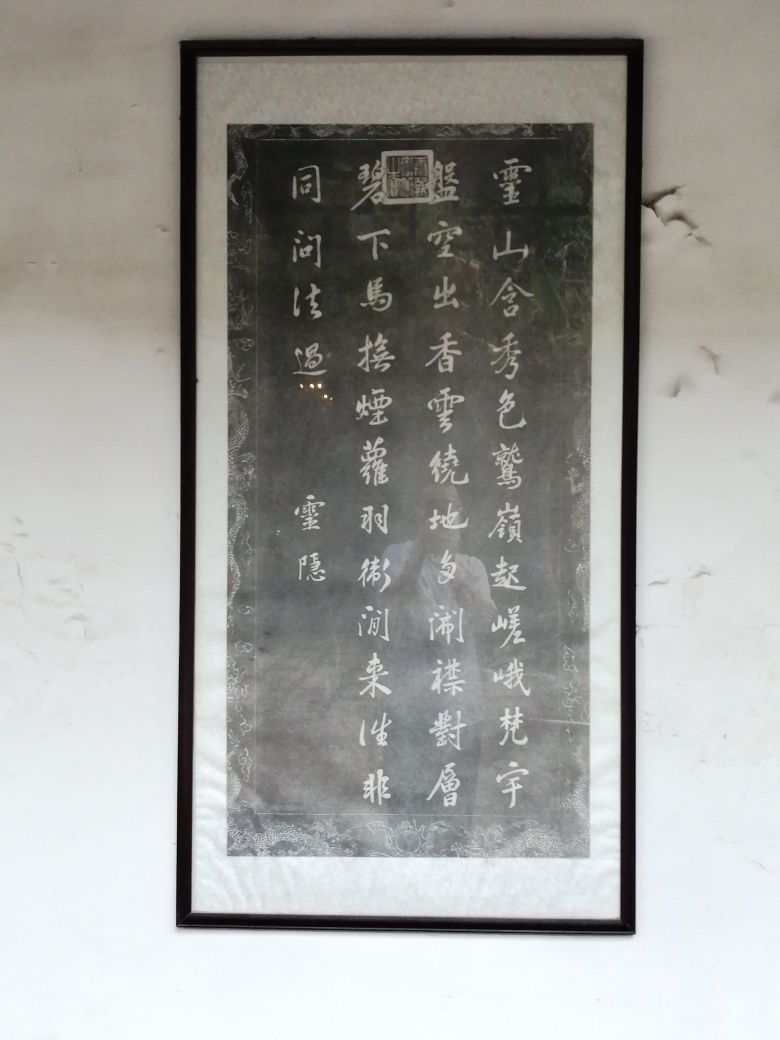 靈山含秀色鷲嶺起嵯峨梵宇
盤空出香雲繞地多開襟對層
碧下馬撫煙蘿羽衛閒來往非
同問法過 靈隱